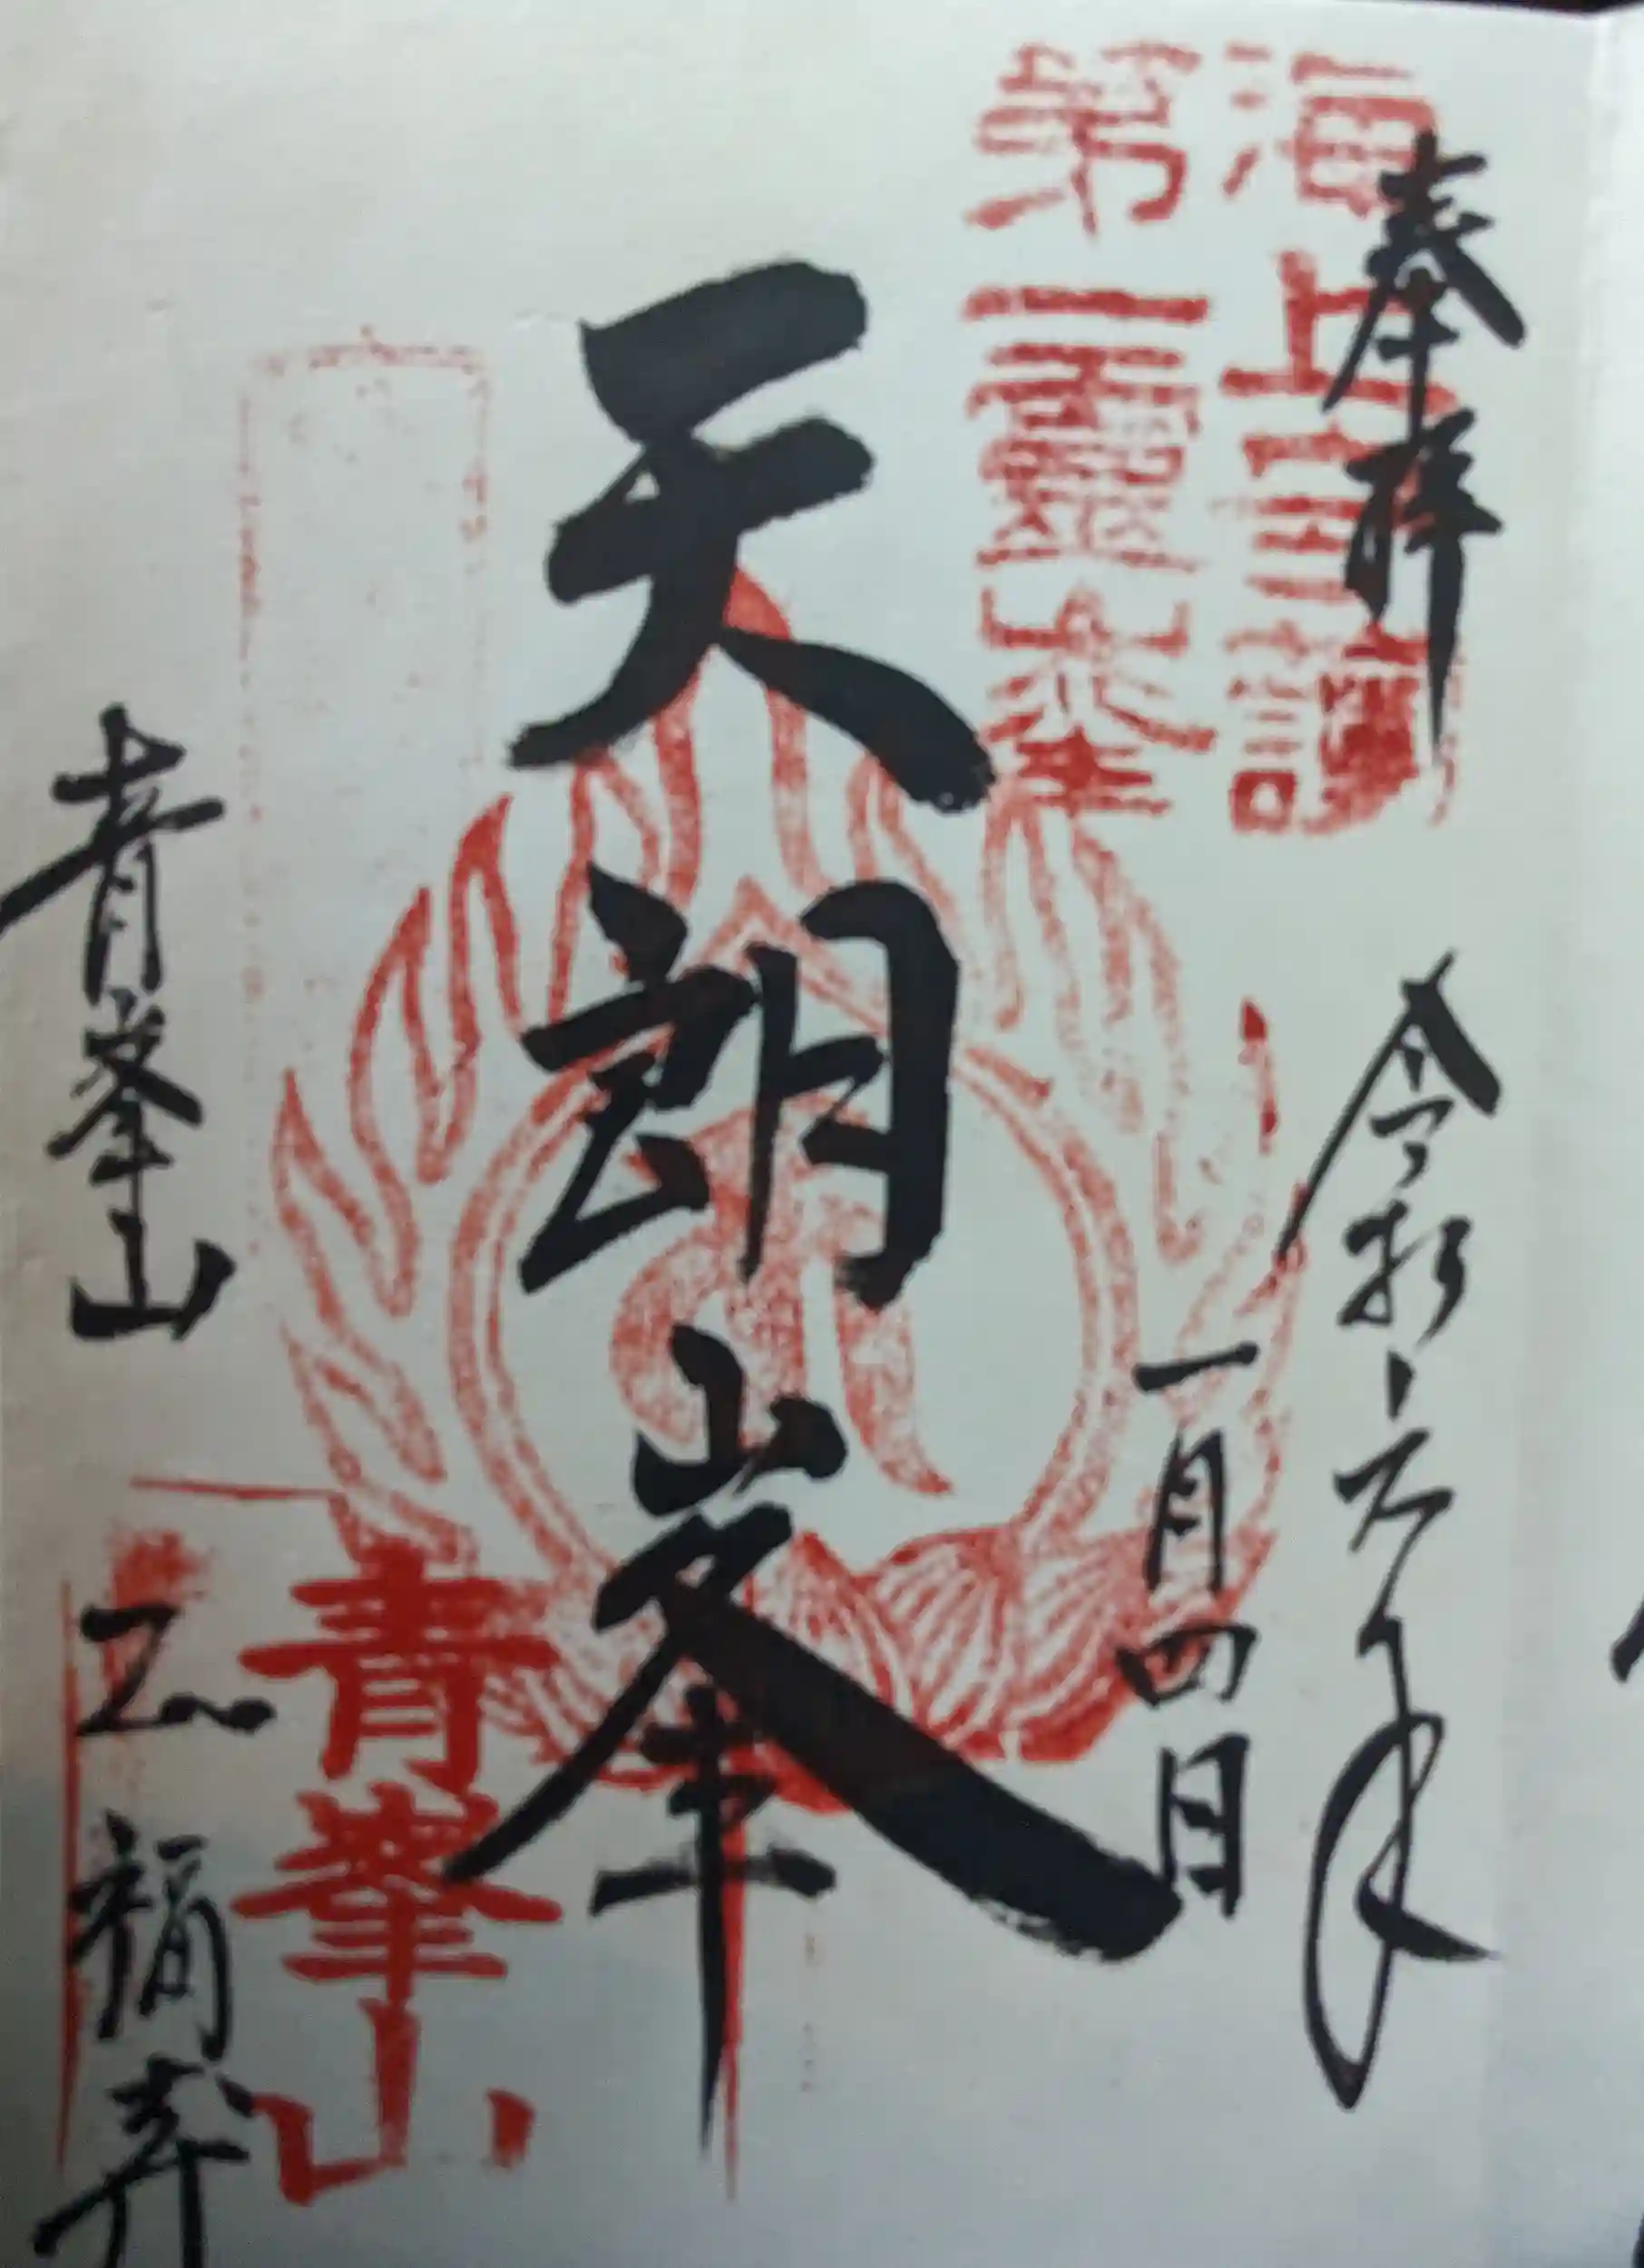 奉拝
海上守護
第一霊峯
令和六年
一月四日
天朗峯
青峯山
青峯山
正福寺